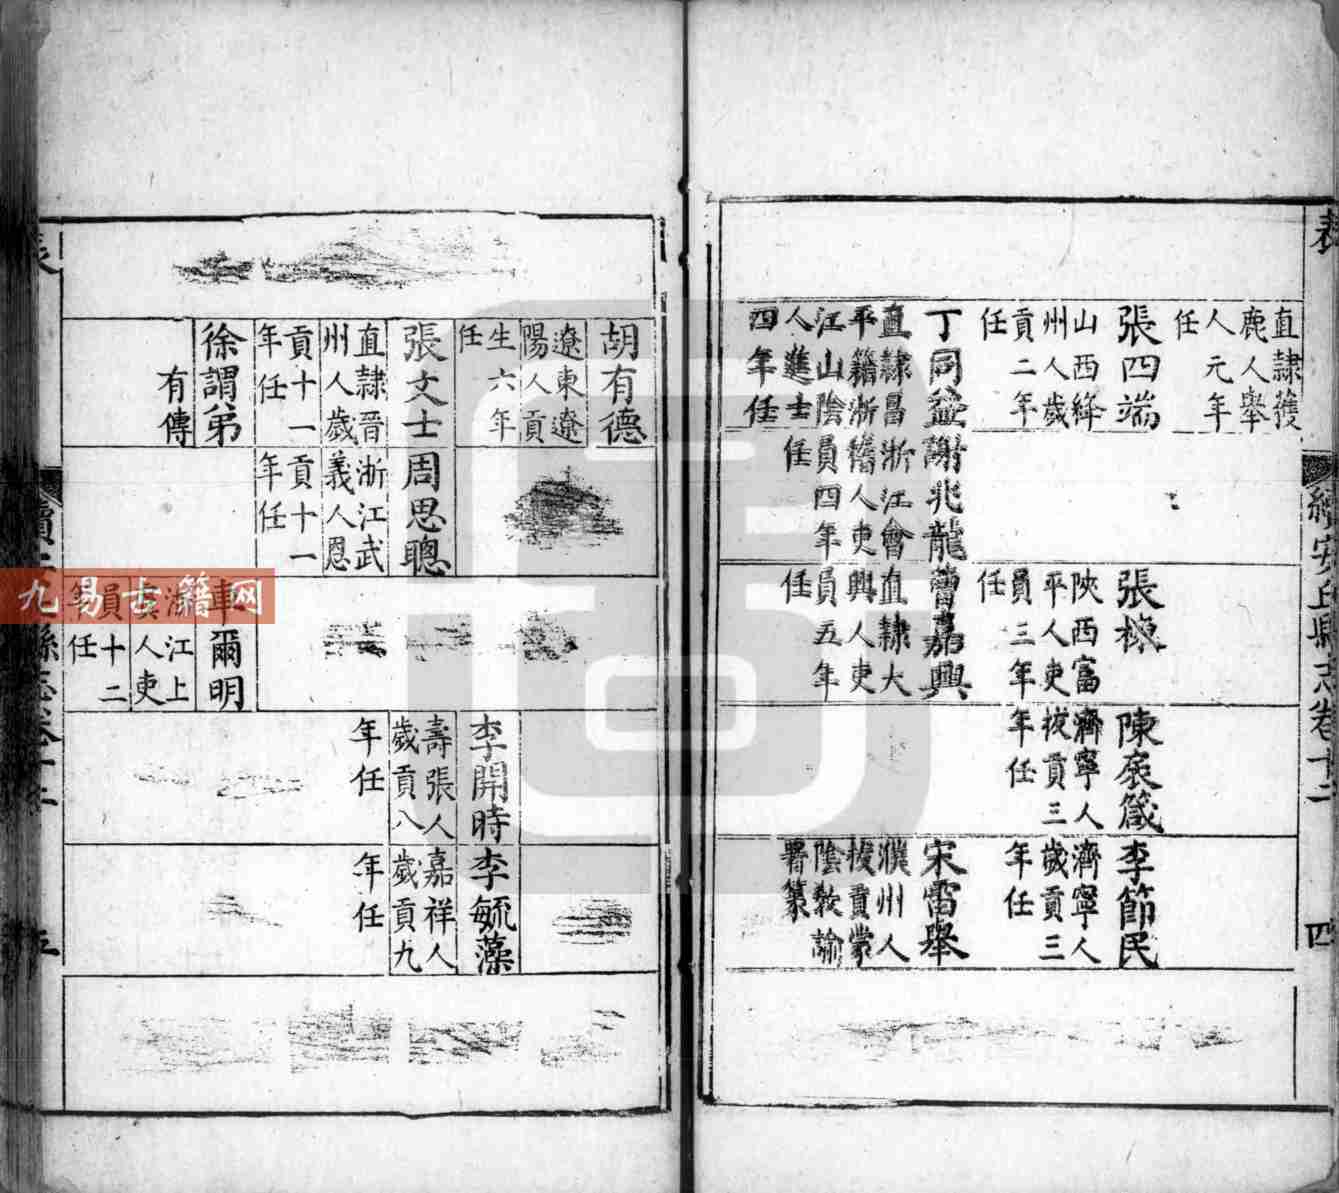 表
續安丘縣志卷十二
四
直隸獲
鹿人舉
人元年
任
張四端
山西絳
州人歲
貢二年
任
丁同益
直隸昌
平籍浙
江山陰
人進士
四年任
謝兆龍
浙江會
稽人吏
員四年
任
張樑
陝西富
平人吏
員三年
任
曹嘉興
直隸大
興人吏
員五年
任
陳扆箴
濟寧人
拔貢三
年任
李節民
濟寧人
歲貢三
年任
宋雷舉
濮州人
拔貢蒙
陰教諭
署篆
胡有德
遼東遼
陽人貢
生六年
任
張文士
直隸晉
州人歲
貢十一
年任
徐謂弟
有傳
周思聰
浙江武
義人恩
貢十一
年任
車爾明
江上
人吏
員十二
任
李開時
壽張人
歲貢八
年任
李毓藻
嘉祥人
歲貢九
年任
五
九易古籍网